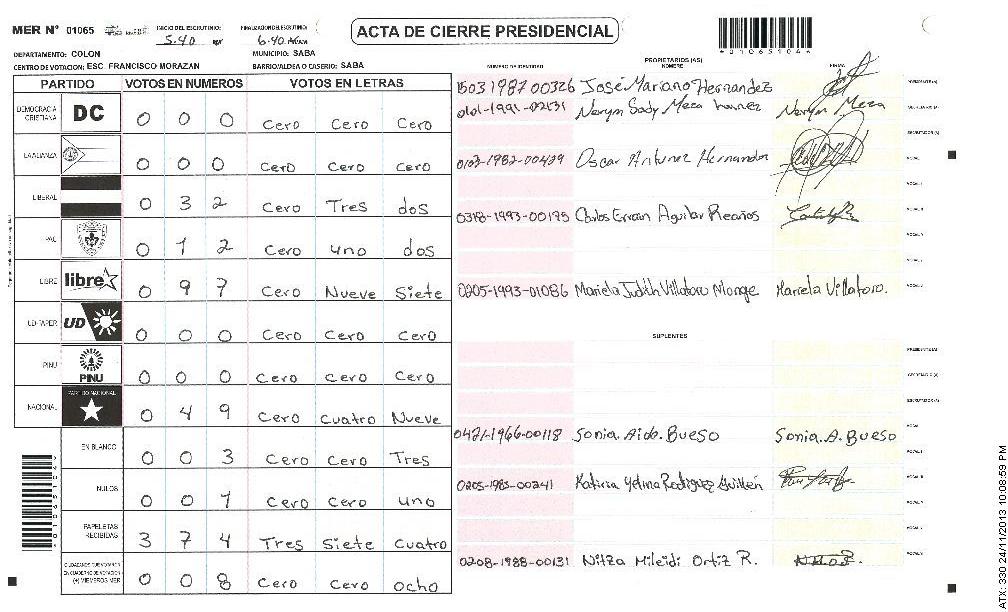 MER Nº 01065 INICIO DEL ESCRUTINIO: 5:40 FINALIZACION DEL ESCRUTINIO: 6:40
ACTA DE CIERRE PRESIDENCIAL
4010651044
DEPARTAMENTO: COLON MUNICIPIO: SABA
CENTRO DE VOTACION: ESC. FRANCISCO MORAZAN BARRIO/ALDEA O CASERIO: SABA
PARTIDO VOTOS EN NUMEROS VOTOS EN LETRAS
DEMOCRACIA CRISTIANA DC 0 0 0 Cero Cero Cero
LA ALIANZA 0 0 0 Cero Cero Cero
LIBERAL 0 3 2 Cero Tres dos
PAC 0 1 2 Cero uno dos
LIBRE libre 0 9 7 Cero Nueve Siete
UD-FAPER UD 0 0 0 Cero Cero Cero
PINU PINU 0 0 0 Cero Cero Cero
NACIONAL PARTIDO NACIONAL 0 4 9 Cero Cuatro Nueve
EN BLANCO 0 0 3 Cero Cero Tres
NULOS 0 0 1 Cero Cero uno
PAPELETAS RECIBIDAS 3 7 4 Tres Siete Cuatro
CIUDADANOS QUE VOTARON EN CUADERNO DE VOTACION (+) MIEMBROS MER 0 0 8 Cero Cero ocho
PROPIETARIOS (AS)
NUMERO DE IDENTIDAD NOMBRE FIRMA
1503 1987 00326 José Mariano Hernandez PRESIDENTE (A)
0101-1991-02131 Nerym Sady Meza Nerym Meza SECRETARIO (A)
ESCRUTADOR (A)
0107-1982-00429 Oscar Antunez Hernandez VOCAL I
VOCAL II
0318-1993-00195 Carlos Efrain Aguilar Recaños VOCAL III
VOCAL IV
0205-1993-01086 Mariela Judith Villatoro Monge Mariela Villatoro. VOCAL V
SUPLENTES
PRESIDENTE (A)
SECRETARIO (A)
ESCRUTADOR (A)
0421-1966-00118 Sonia Aida Bueso Sonia. A. Bueso VOCAL I
VOCAL II
0205-1985-00241 Katiria Yelina Rodriguez Guillén VOCAL III
VOCAL IV
0208-1988-00131 Nitza Mileidi Ortiz R. VOCAL V
ATX: 330 24/11/2013 10:08:59 PM